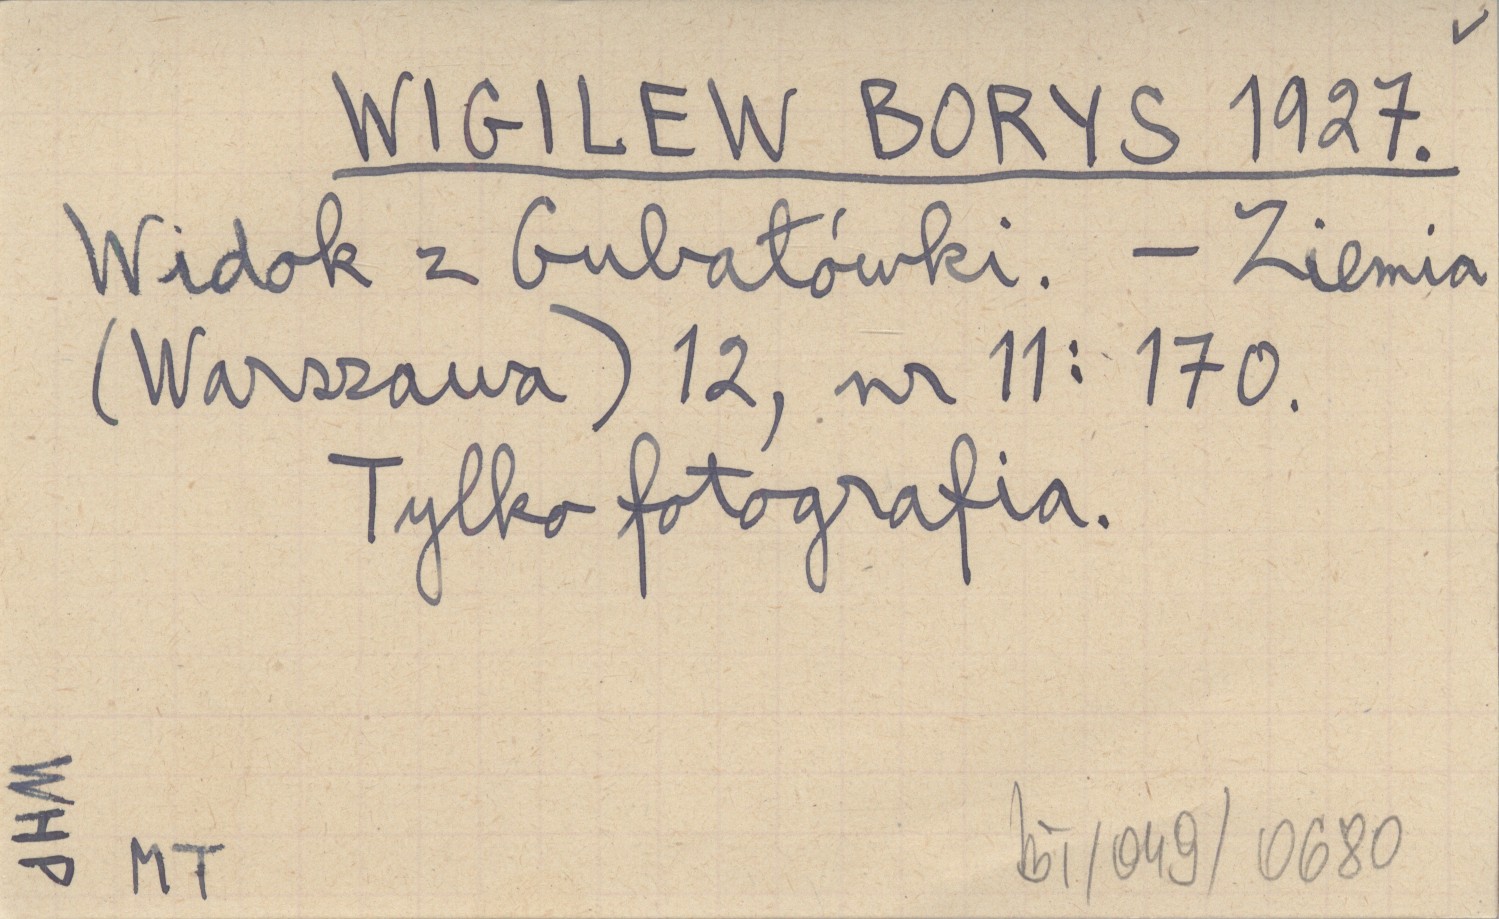 WIGILEW BORYS 1927.
Widok z Gubałówki. – Ziemia
(Warszawa) 12, nr 11: 170.
Tylko fotografia.
WHP
MT
/049/ 0680